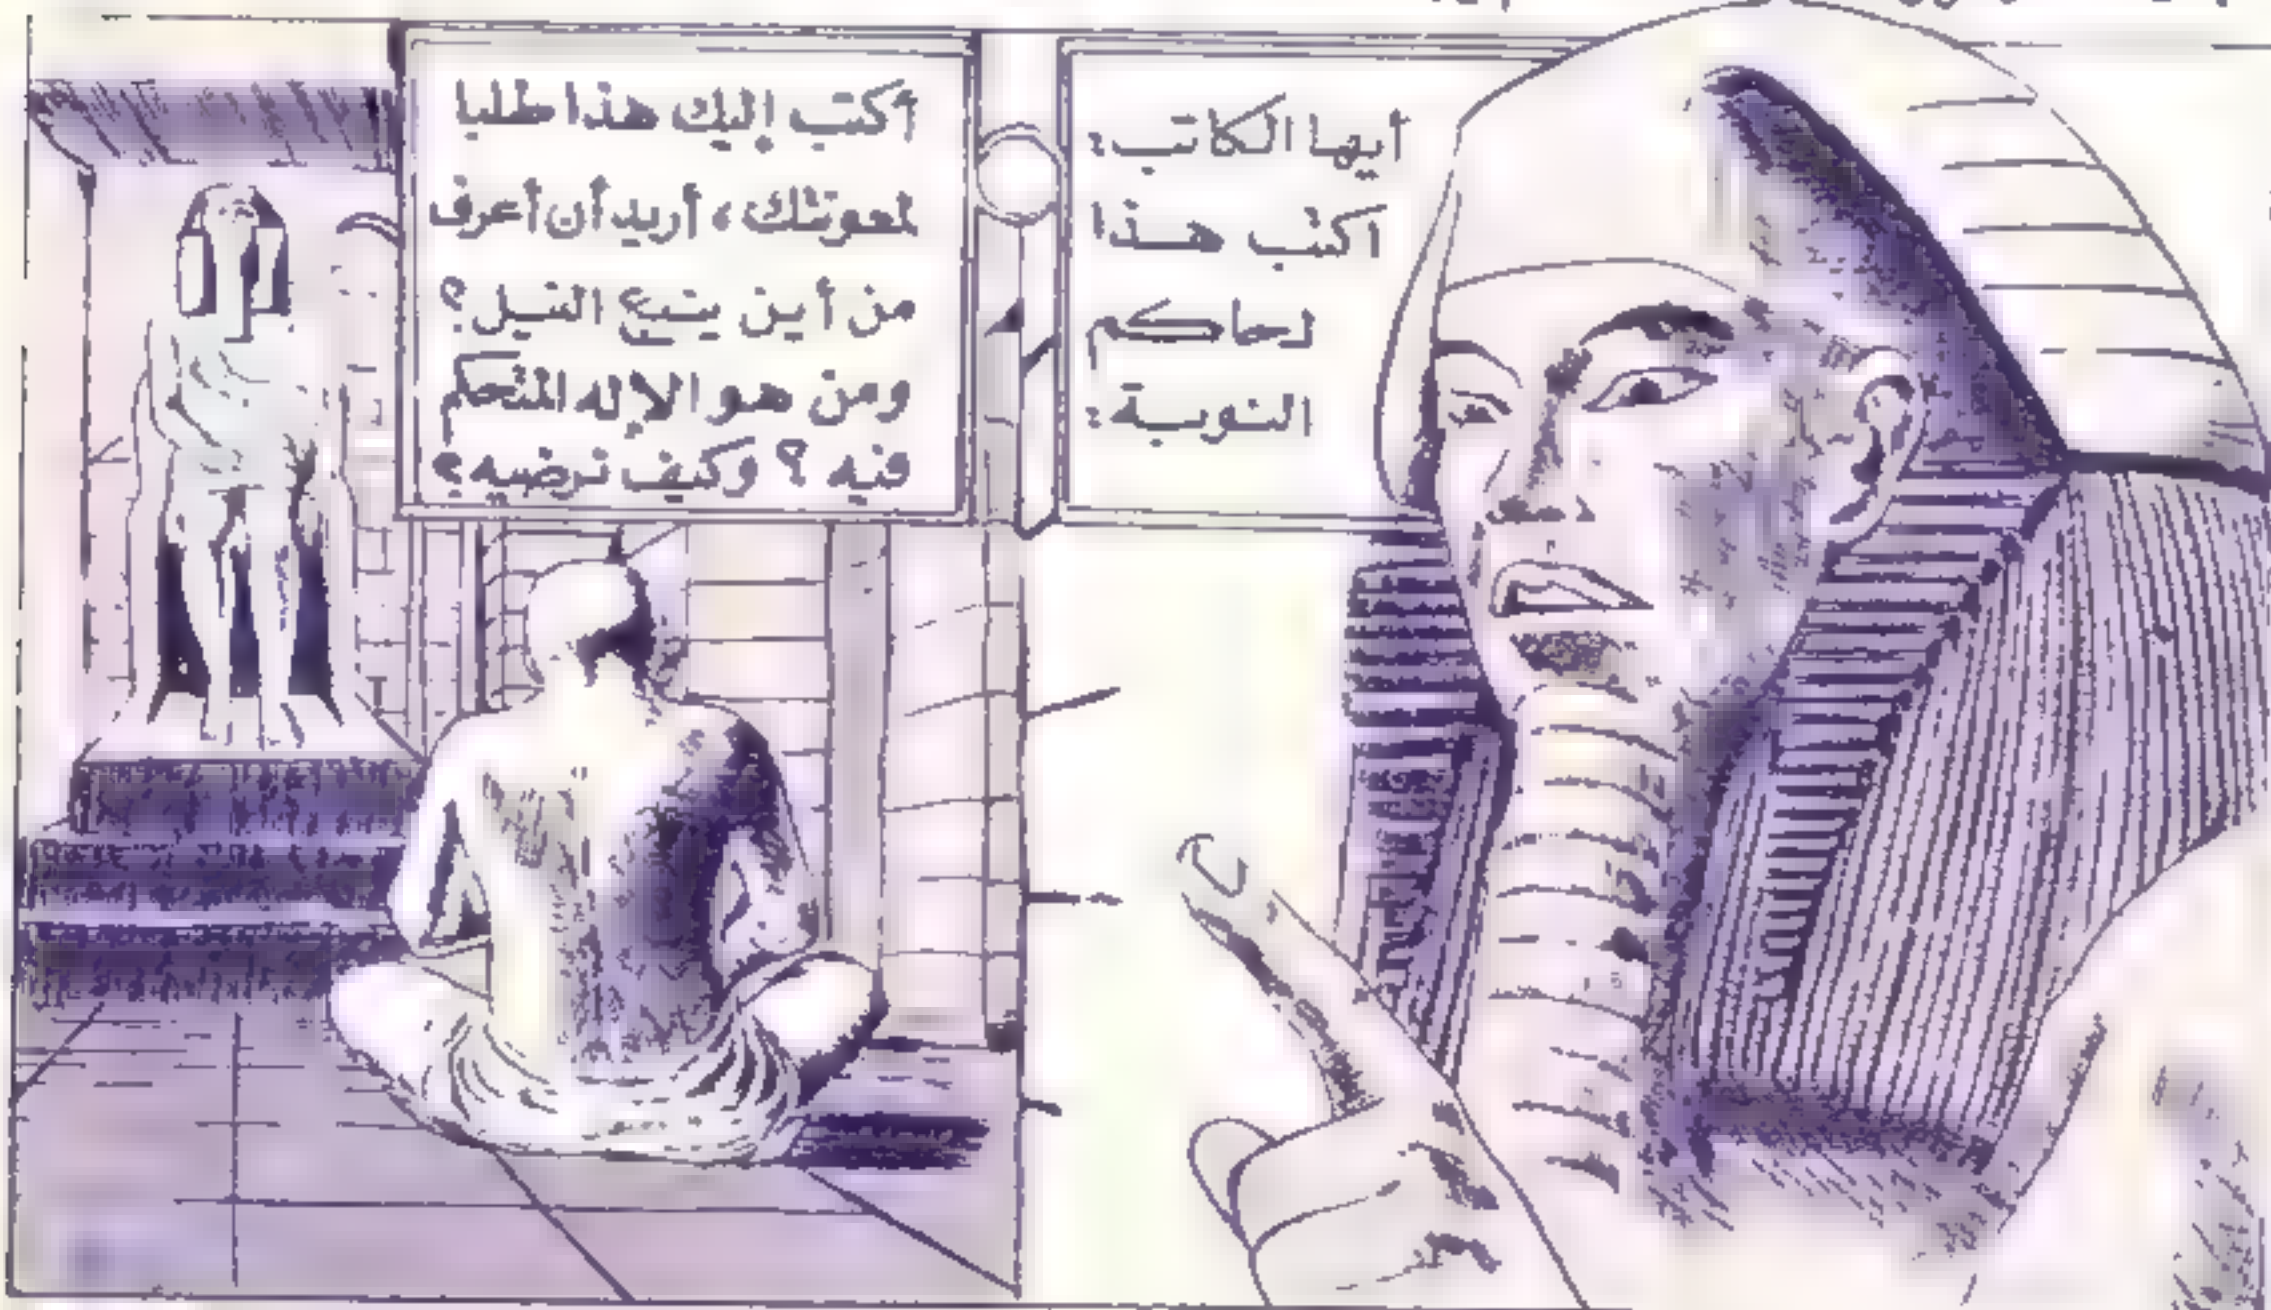 أيها الكاتب:
اكتب هذا
لحاكم
النوبة:
أكتب إليك هذا طلبا
لمعونتك، أريد أن أعرف
من أين ينبع النيل؟
ومن هو الإله المتحكم
فيه؟ وكيف نرضيه؟